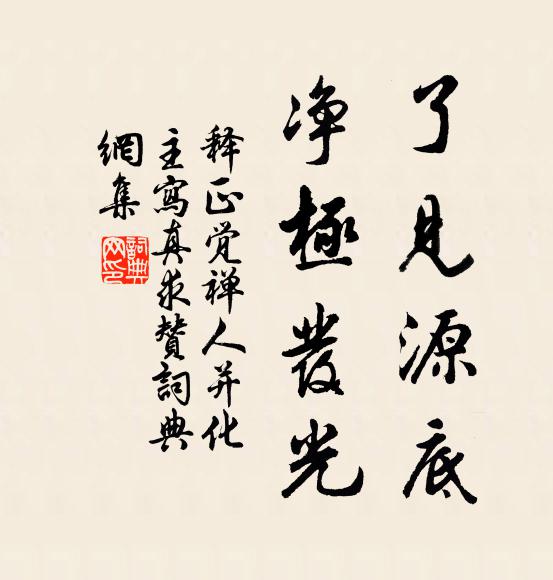 了見源底
净極發光
释正覚禅人并化
主寫真求赞詞典
網集
詞典網印